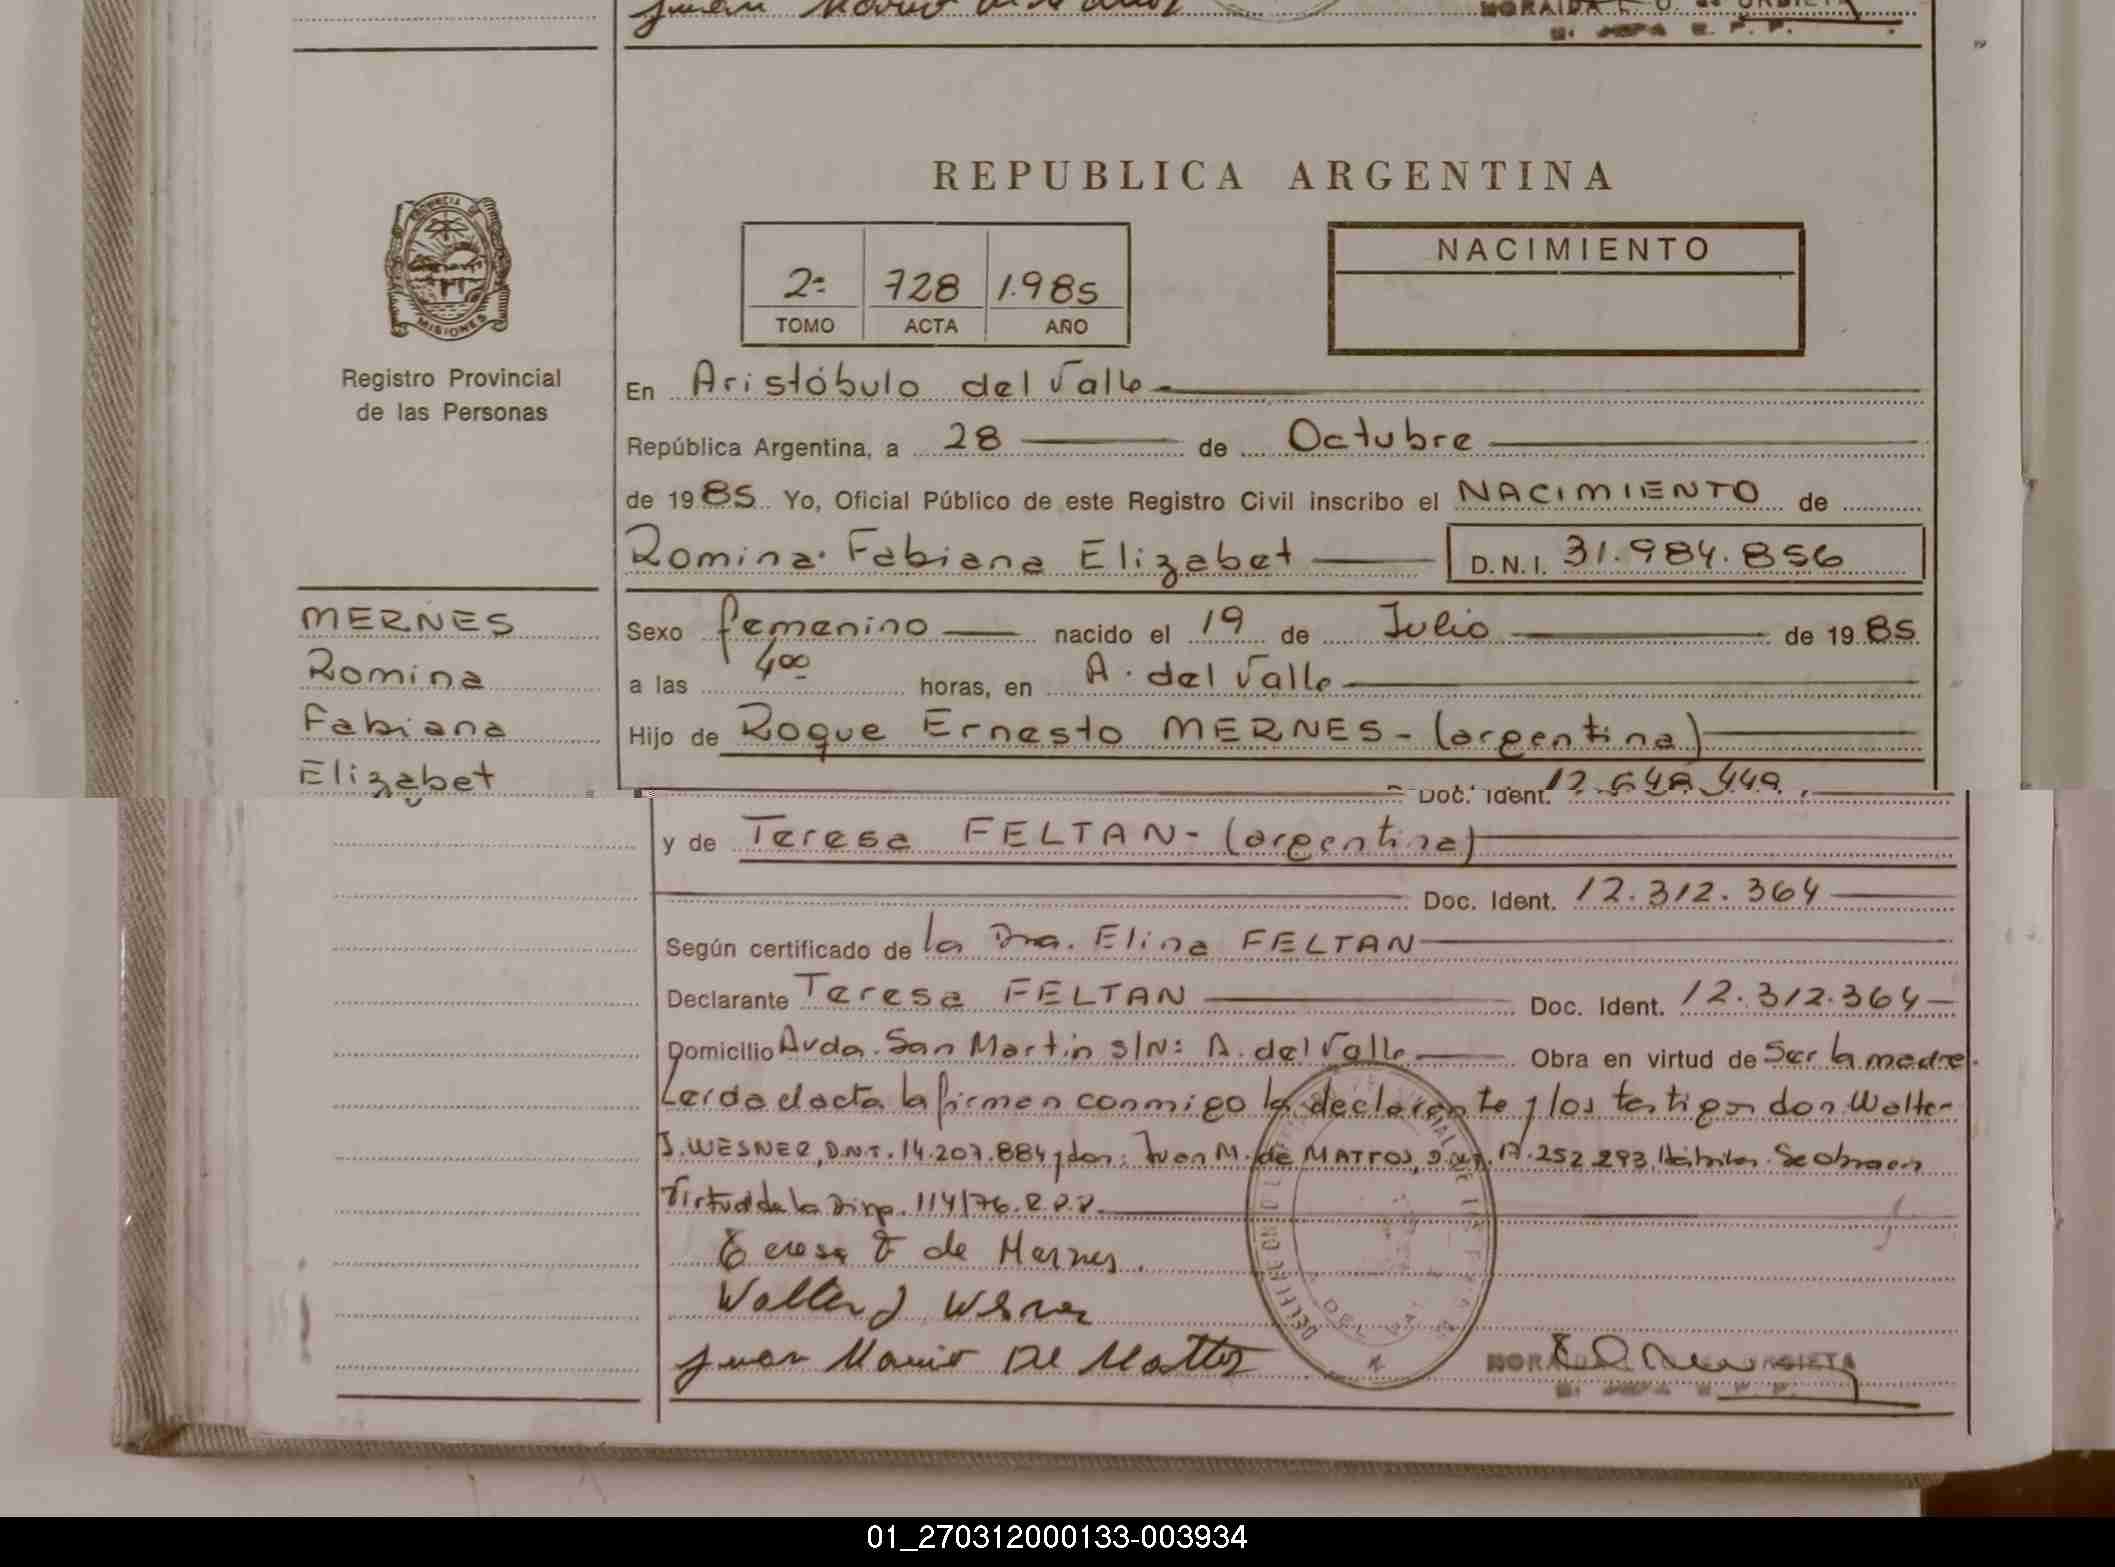 Juan Mario De Mattos
REPUBLICA ARGENTINA
PROVINCIA
MISIONES
Registro Provincial
de las Personas
2ª 728 1.985
TOMO ACTA AÑO
NACIMIENTO
En Aristóbulo del Valle
República Argentina, a 28 de Octubre
de 1985 Yo, Oficial Público de este Registro Civil inscribo el NACIMIENTO de
Romina Fabiana Elizabet D.N.I. 31.984.856
MERNES
Romina
Fabiana
Elizabet
Sexo femenino nacido el 19 de Julio de 1985
a las 4⁰⁰ horas, en A. del Valle
Hijo de Roque Ernesto MERNES - (argentina)
Doc. Ident. 12.648.449
y de Teresa FELTAN - (argentina)
Doc. Ident. 12.312.364
Según certificado de la Dra. Elina FELTAN
Declarante Teresa FELTAN Doc. Ident. 12.312.364
Domicilio Avda. San Martín s/Nº A. del Valle Obra en virtud de Ser la madre.
Leída el acta la firman conmigo la declarante y los testigos don Walter
J. WESNER, D.N.I. 14.207.884 y don: Juan M. de MATTOS, 252.293, Hábiles. Se obra en
Virtud de la Disp. 114/76. R.P.P.
Teresa F de Mernes.
Walter J Wesner
Juan Mario De Mattos
01_270312000133-003934